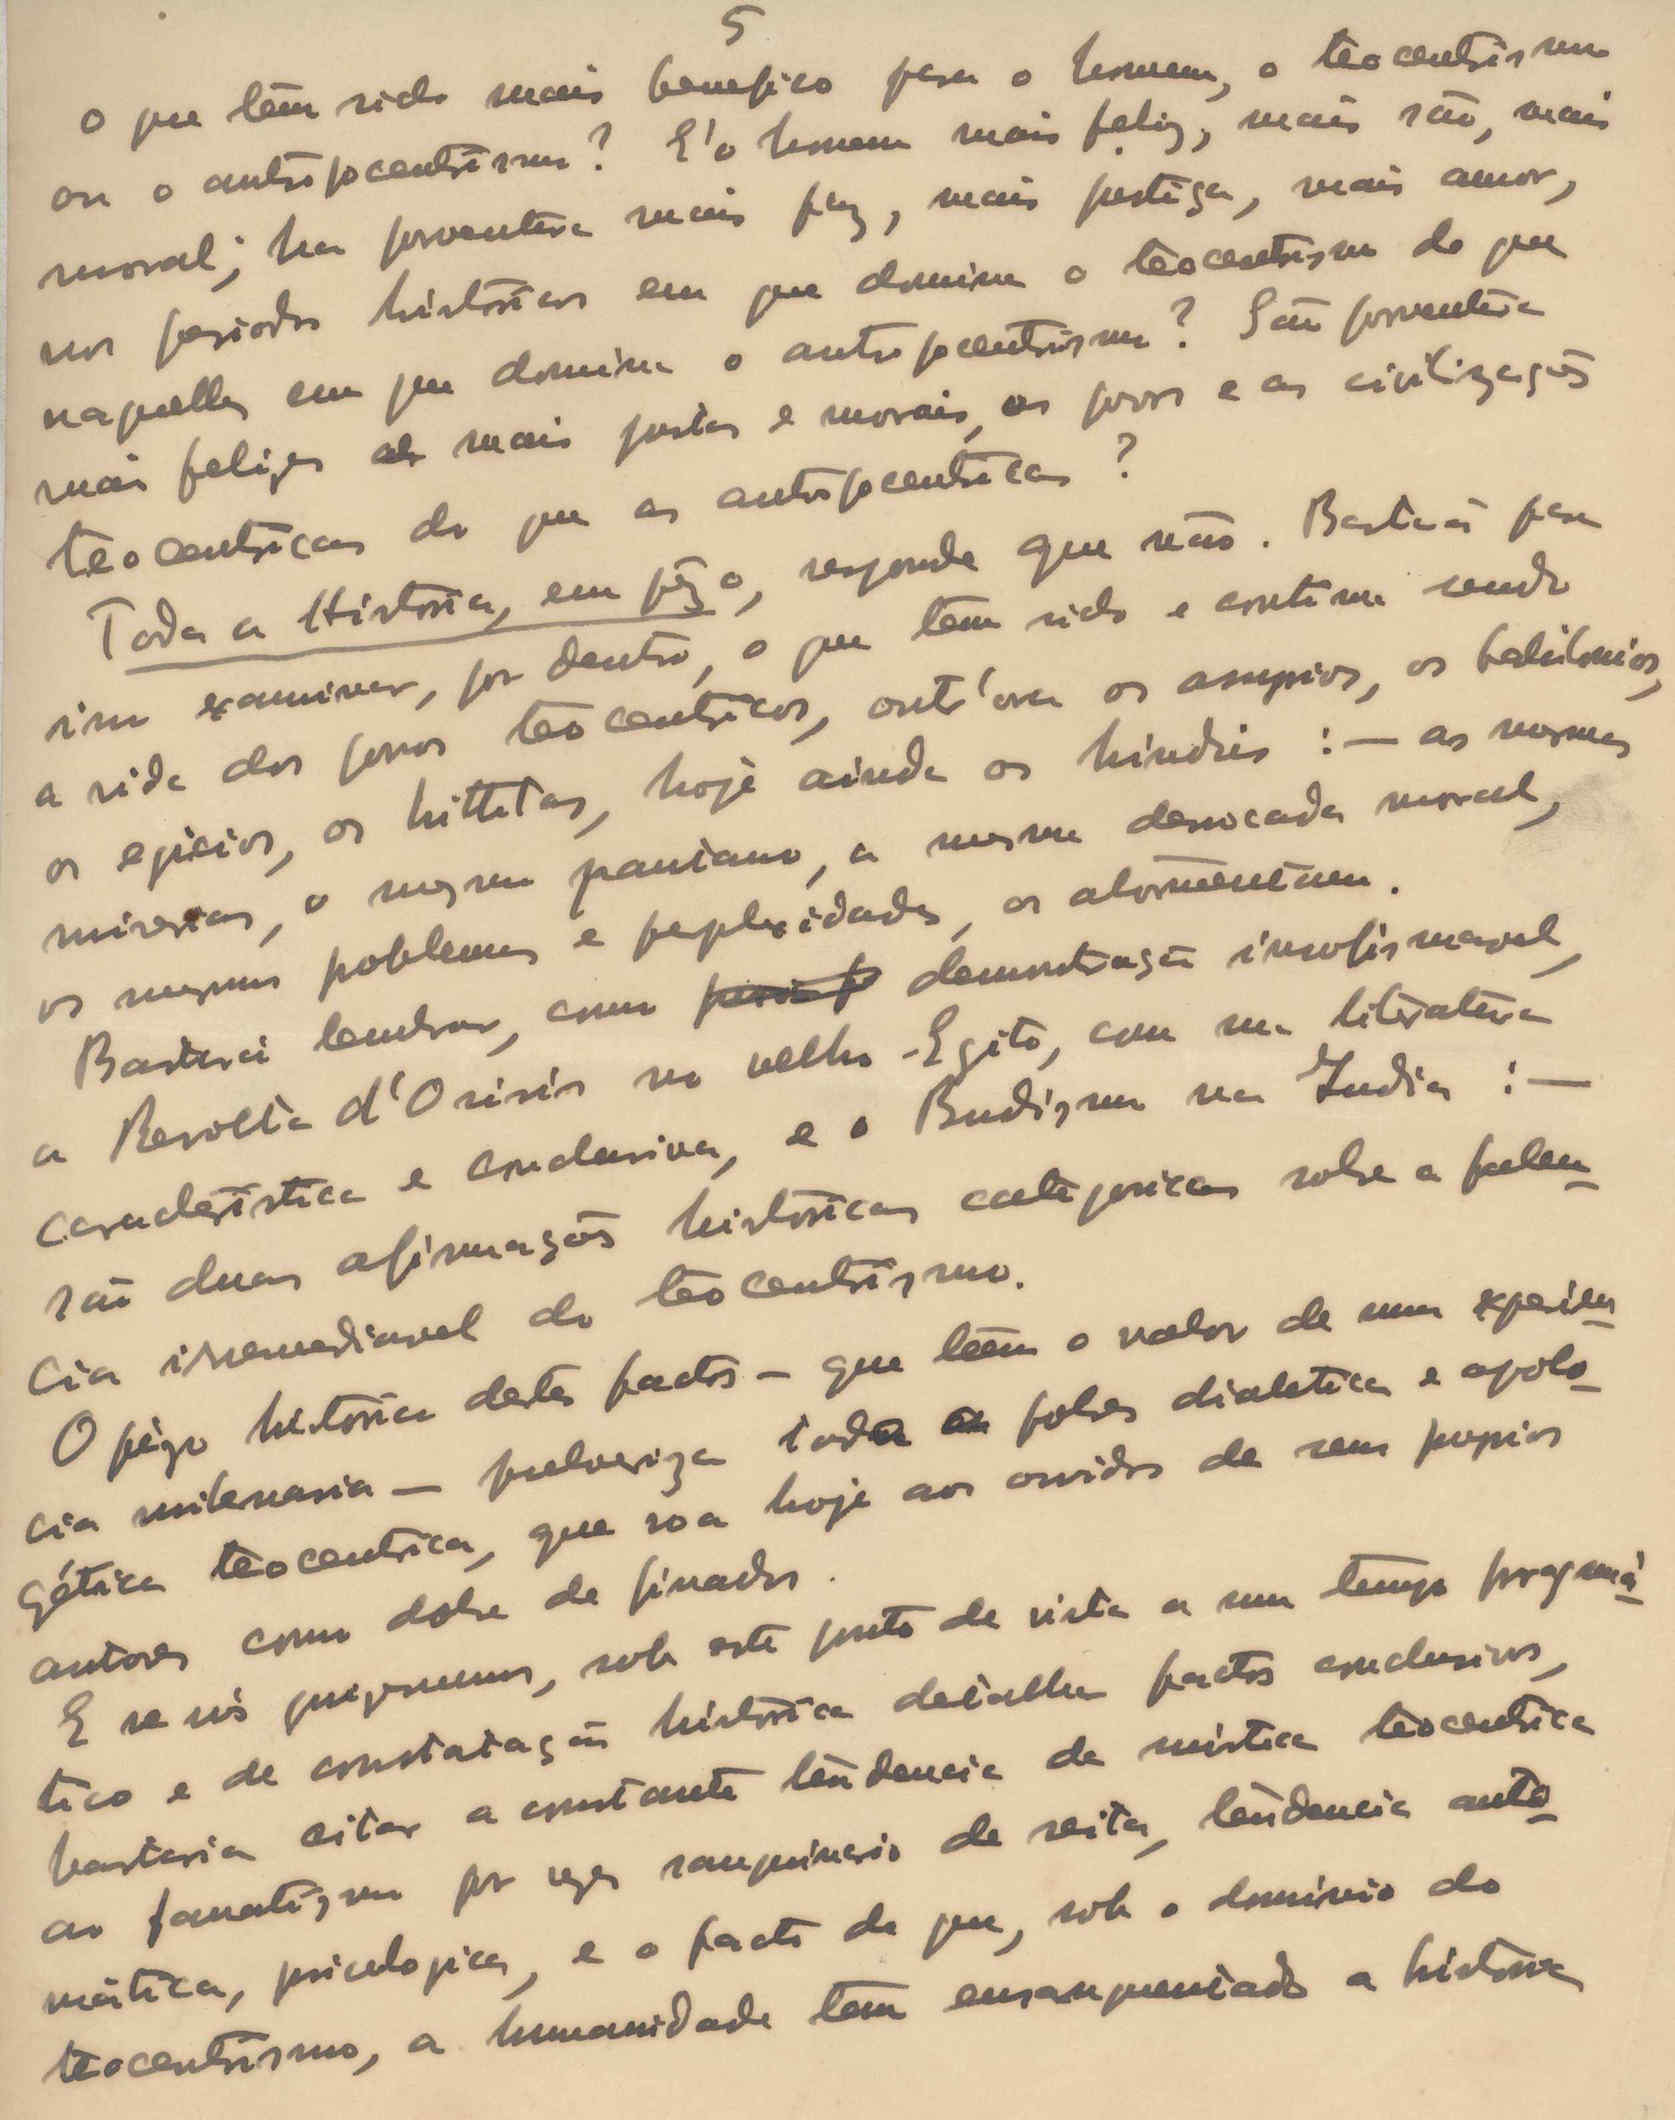 5
o que têm sido mais benefico para o homem, o teocentrismo
ou o antropocentrismo? E' o homem mais feliz, mais são, mais
moral; ha porventura mais paz, mais justiça, mais amor,
nos periodos históricos em que domina o teocentrismo do que
naquelles em que domina o antropocentrismo? São porventura
mais felizes mais justas e morais, os povos e as civilizações
teocentricas do que as antropocentricas?
Toda a História, em pêzo, responde que não. Bastará para
isso examinar, por dentro, o que têm sido e continua sendo
a vida dos povos teocentricos, outr'ora os assyrios, os babilonios,
os egicios, os hittitas, hoje ainda os hindus :— as mesmas
miserias, o mesmo pantano, a mesma derrocada moral,
os mesmos problemas e perplexidades, os atormentam.
Bastará lembrar, como demonstração insofismavel,
a Revolta d'Osiris no velho Egito, com sua literatura
caracteristica e conclusiva, e o Budismo na India :—
são duas afirmações históricas categoricas sobre a falen-
cia irremediavel do teocentrismo.
O pêzo histórico destes factos — que têem o valor de uma experien-
cia milenaria — pulveriza toda a pobre dialetica e apolo-
gética teocentrica, que soa hoje aos ouvidos de seus propios
autores como dobre de finados.
E se nós quizessemos, sob este ponto de vista a um tempo pragmá-
tico e de constatação histórica detalhar factos conclusivos,
bastaria citar a constante têndencia da mistica teocentrica
ao fanatismo por vezes sanguinario de seita, têndencia auto-
mática, psicologica, e o facto de que, sob o dominio do
teocentrismo, a humanidade tem ensanguentado a história